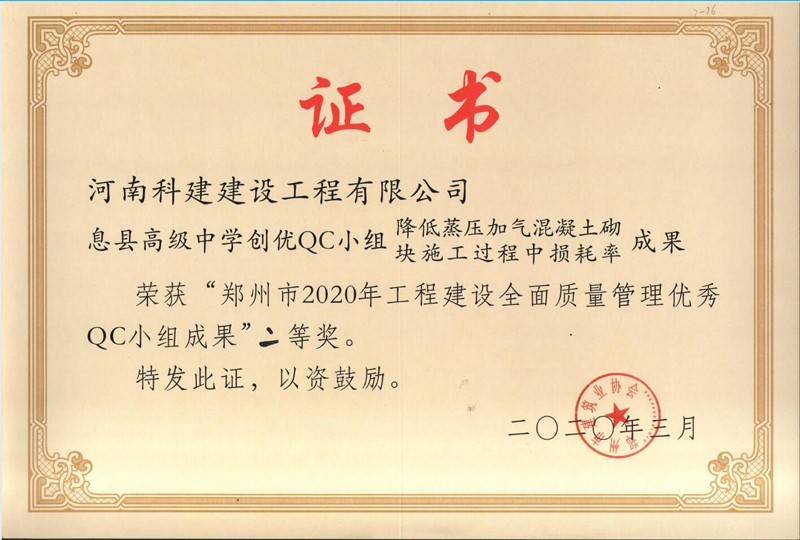 7-76
证 书
河南科建建设工程有限公司
息县高级中学创优QC小组 降低蒸压加气混凝土砌块施工过程中损耗率 成果
荣获“郑州市2020年工程建设全面质量管理优秀
QC小组成果”二等奖。
特发此证，以资鼓励。
郑州市建筑业协会
二〇二〇年三月